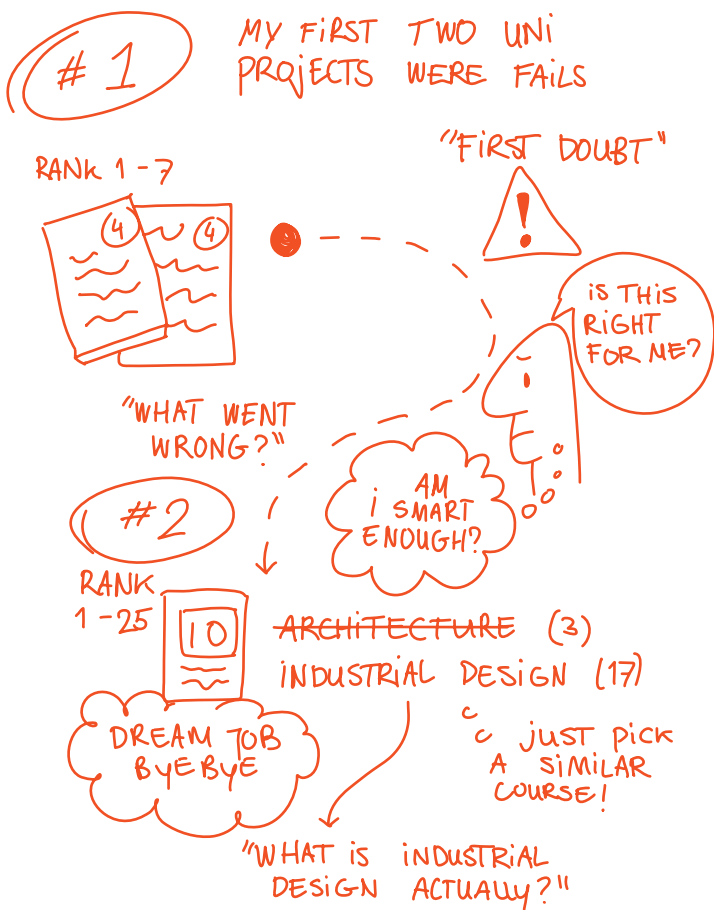 #1
MY FiRST TWO UNi
PROjECTS WERE FAiLS
RANK 1-7
4
4
"FiRST DOUBT"
!
iS THiS
RiGHT
FOR ME?
"WHAT WENT
WRONG?"
AM
i SMART
ENOUGH?
#2
RANK
1-25
10
ARCHiTECTURE (3)
iNDUSTRiAL DESiGN (17)
DREAM JOB
BYEBYE
jUST PiCK
A SiMiLAR
COURSE!
"WHAT iS iNDUSTRiAL
DESiGN ACTUALLY?"